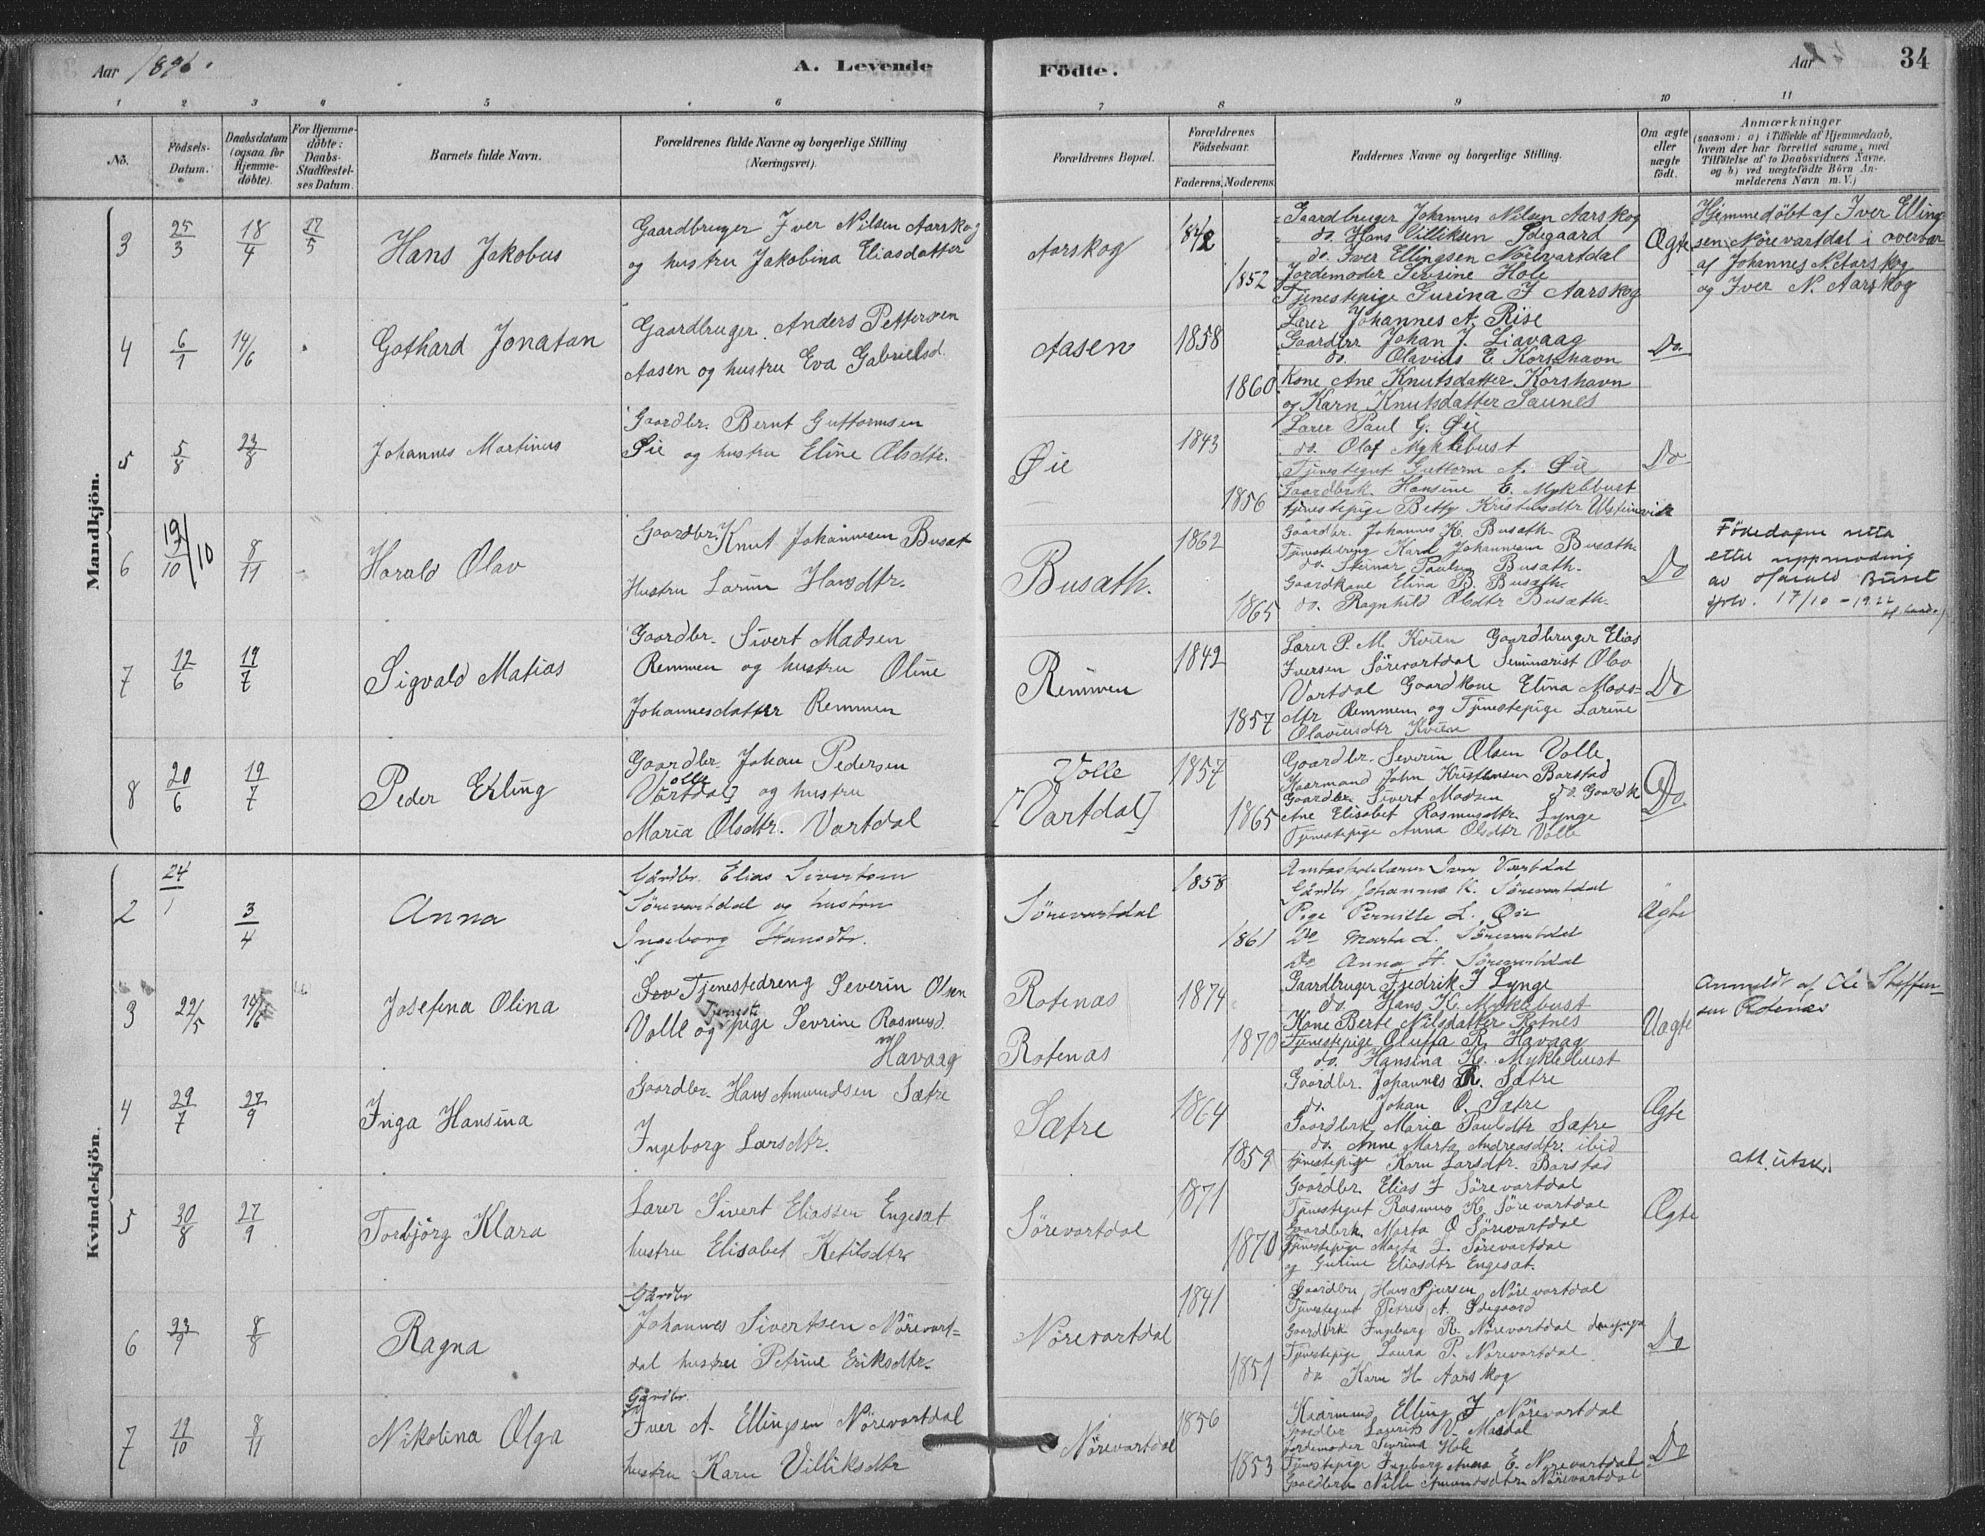 Aar 1896.
A. Levende
Födte.
Aar
34
1 2 3 4 5 6 7 8 9 10 11
No.
Födsels-
Datum.
Daabsdatum
(ogsaa for
Hjemme-
döbte).
For Hjemme-
döbte:
Daabs-
Stadfæstel-
ses Datum.
Barnets fulde Navn.
Forældrenes fulde Navne og borgerlige Stilling
(Næringsvei).
Forældrenes Bopæl.
Forældrenes
Födselsaar.
Faderens. Moderens.
Faddernes Navne og borgerlige Stilling.
Om ægte
eller
uægte
födt.
Anmærkninger
(saasom: a) i Tilfælde af Hjemmedaab,
hvem der har forrettet samme, med
Tilföielse af to Daabsvidners Navne,
og b) ved uægtefödte Börn An-
melderens Navn m. V.)
Mandkjön.
3
25/3
18/4
17/5
Hans Jakobus
Gaardbruger Iver Nilsen Aarskog
og hustru Jakobina Eliasdatter
Aarskog
1842
1852
Gaardbruger Johannes Nilsen Aarskog
do. Hans Villiksen Ödegaard
do. Iver Ellingsen Nörevartdal
Jordemoder Sevrine Hole
Tjenestepige Gurina J Aarskog
Ægte
Hjemmedöbt af Iver Elling-
sen Nörevartdal i overvær
af Johannes N. Aarskog
og Iver N. Aarskog
4
6/1
14/6
Gothard Jonatan
Gaardbruger Anders Pettersen
Aasen og hustru Eva Gabrielsd.
Aasen
1858
1860
Lærer Johannes A. Rise
Gaardbr Johan J. Liavaag
do. Olavius E. Korshavn
Kone Ane Knutsdatter Korshavn
og Karn Knutsdatter Saunes
Do
5
5/8
23/8
Johannes Martinus
Gaardbr. Bernt Guttormsen
Öie og hustru Eline Olsdtr.
Öie
1843
1856
Lærer Paul G. Öie
do. Olaf Myklebust
Tjenestegut Guttorm A. Öie
Gaardbrk. Hansine E. Myklebust
tjenestepige Betty Kristensdtr Ulsteinvik
Do
6
19/10
8/11
Harald Olav
Gaardbr. Knut Johannesen Busæt
Hustru Larine Hansdtr.
Busæth.
1862
1865
Gaardbr. Johannes K. Busæth
Tjenestedreng Karl Johannesen Busæth
do. Steinar Paulsen Busæth.
Gaardkone Elina B. Busæth.
do. Ragnhild Olsdtr Busæth.
Do
Födedagen retta
etter uppmoding
av Harald Buset
sjölv. 17/10 - 1922
7
12/6
19/7
Sigvald Matias
Gaardbr. Sivert Madsen
Remmen og hustru Oline
Johannesdatter Remmen
Remmen
1842
1857
Lærer P. M. Kvien Gaardbruger Elias
Iversen Sörevartdal Seminarist Olav
Vartdal Gaardkone Elina Mads-
dtr Remmen og Tjenestepige Larine
Olaviusdtr Kvien
Do
8
20/6
19/7
Peder Erling
Gaardbr. Johan Pedersen
Volle
Vartdal] og hustru
Maria Olsdtr. Vartdal
Volle
[Vartdal]
1857
1865
Gaardbr. Severin Olsen Volle
Kaarmand John Kristensen Barstad
Gaardbr. Sivert Madsen do. Gaardk
Ane Elisabet Rasmusdtr. Lynge
Tjenestepige Anna Olsdtr Volle
Do
Kvindekjön.
2
24/1
3/4
Anna
Gårdbr. Elias Sivertsen
Sörevartdal og hustru
Ingeborg Hansdtr.
Sörevartdal
1858
1861
Amtsskolelærer Iver Vartdal
Gårdbr Johannes K. Sörevartdal
Pige Pernille L. Öie
Do Marta L. Sörevartdal
Do Anna H. Sörevartdal
Ægte
3
22/5
14/6
Josefina Olina
Tjenestedreng Severin Olsen
Volle og Tjenestepige Sevrine Rasmusd.
Havaag
Rotenæs
Rotenæs
1874
1870
Gaardbruger Fredrik J Lynge
do. Hans K. Myklebust
Kone Berte Nilsdatter Rotnes
Tjenestepige Oluffa R. Havaag
do. Hansina K. Myklebust
Uægte
Anmeldt af Ole Steffen-
sen Rotenæs
4
29/7
27/9
Inga Hansina
Gaardbr. Hans Amundsen Sætre
Ingeborg Larsdtr.
Sætre
1864
1859
Gaardbr. Johannes R. Sætre
do. Johan O. Sætre
Gaardbrk Maria Paulsdtr Sætre
do. Anne Marta Andreasdtr. ibid
tjenestepige Karn Larsdtr. Barstad
Ægte
att. utsk.
5
30/8
27/9
Torbjörg Klara
Lærer Sivert Eliassen Engesæt
hustru Elisabet Ketilsdtr
Sörevartdal
1871
1870
Gaardbr. Elias J Sörevartdal
Tjenestegut Rasmus K. Sörevartdal
Gaardbrk. Marta O Sörevartdal
Tjenestepige Marta L. Sörevartdal
og Gurine Eliasdtr Engesæt.
Ægte
6
23/7
8/8
Ragna
Gårdbr
Johannes Sivertsen Nörevart-
dal hustru Petrine Eriksdtr.
Nörevartdal
1841
1851
Gaardbr. Hans Sjursen Nörevartdal
Tjenestegut Petrus A. Ödegaard
Gaardbrk Ingeborg R. Nörevartdal
Tjenestepige Laura P. Nörevartdal
do. Karn H. Aarskog
Do
7
19/10
8/11
Nikolina Olga
Gårdbr.
Iver A. Ellingsen Nörevartdal
hustru Karn Villiksdtr
Nörevartdal
1856
1853
Kaarmand Elling J Nörevartdal
Gaardbr Laurits V. Masdal
Jordemoder Sevrina Hole
Tjenestepige Ingeborg Anna E. Nörevartdal
Gaardbrk Nille Amundsdtr Nörevartdal
Do